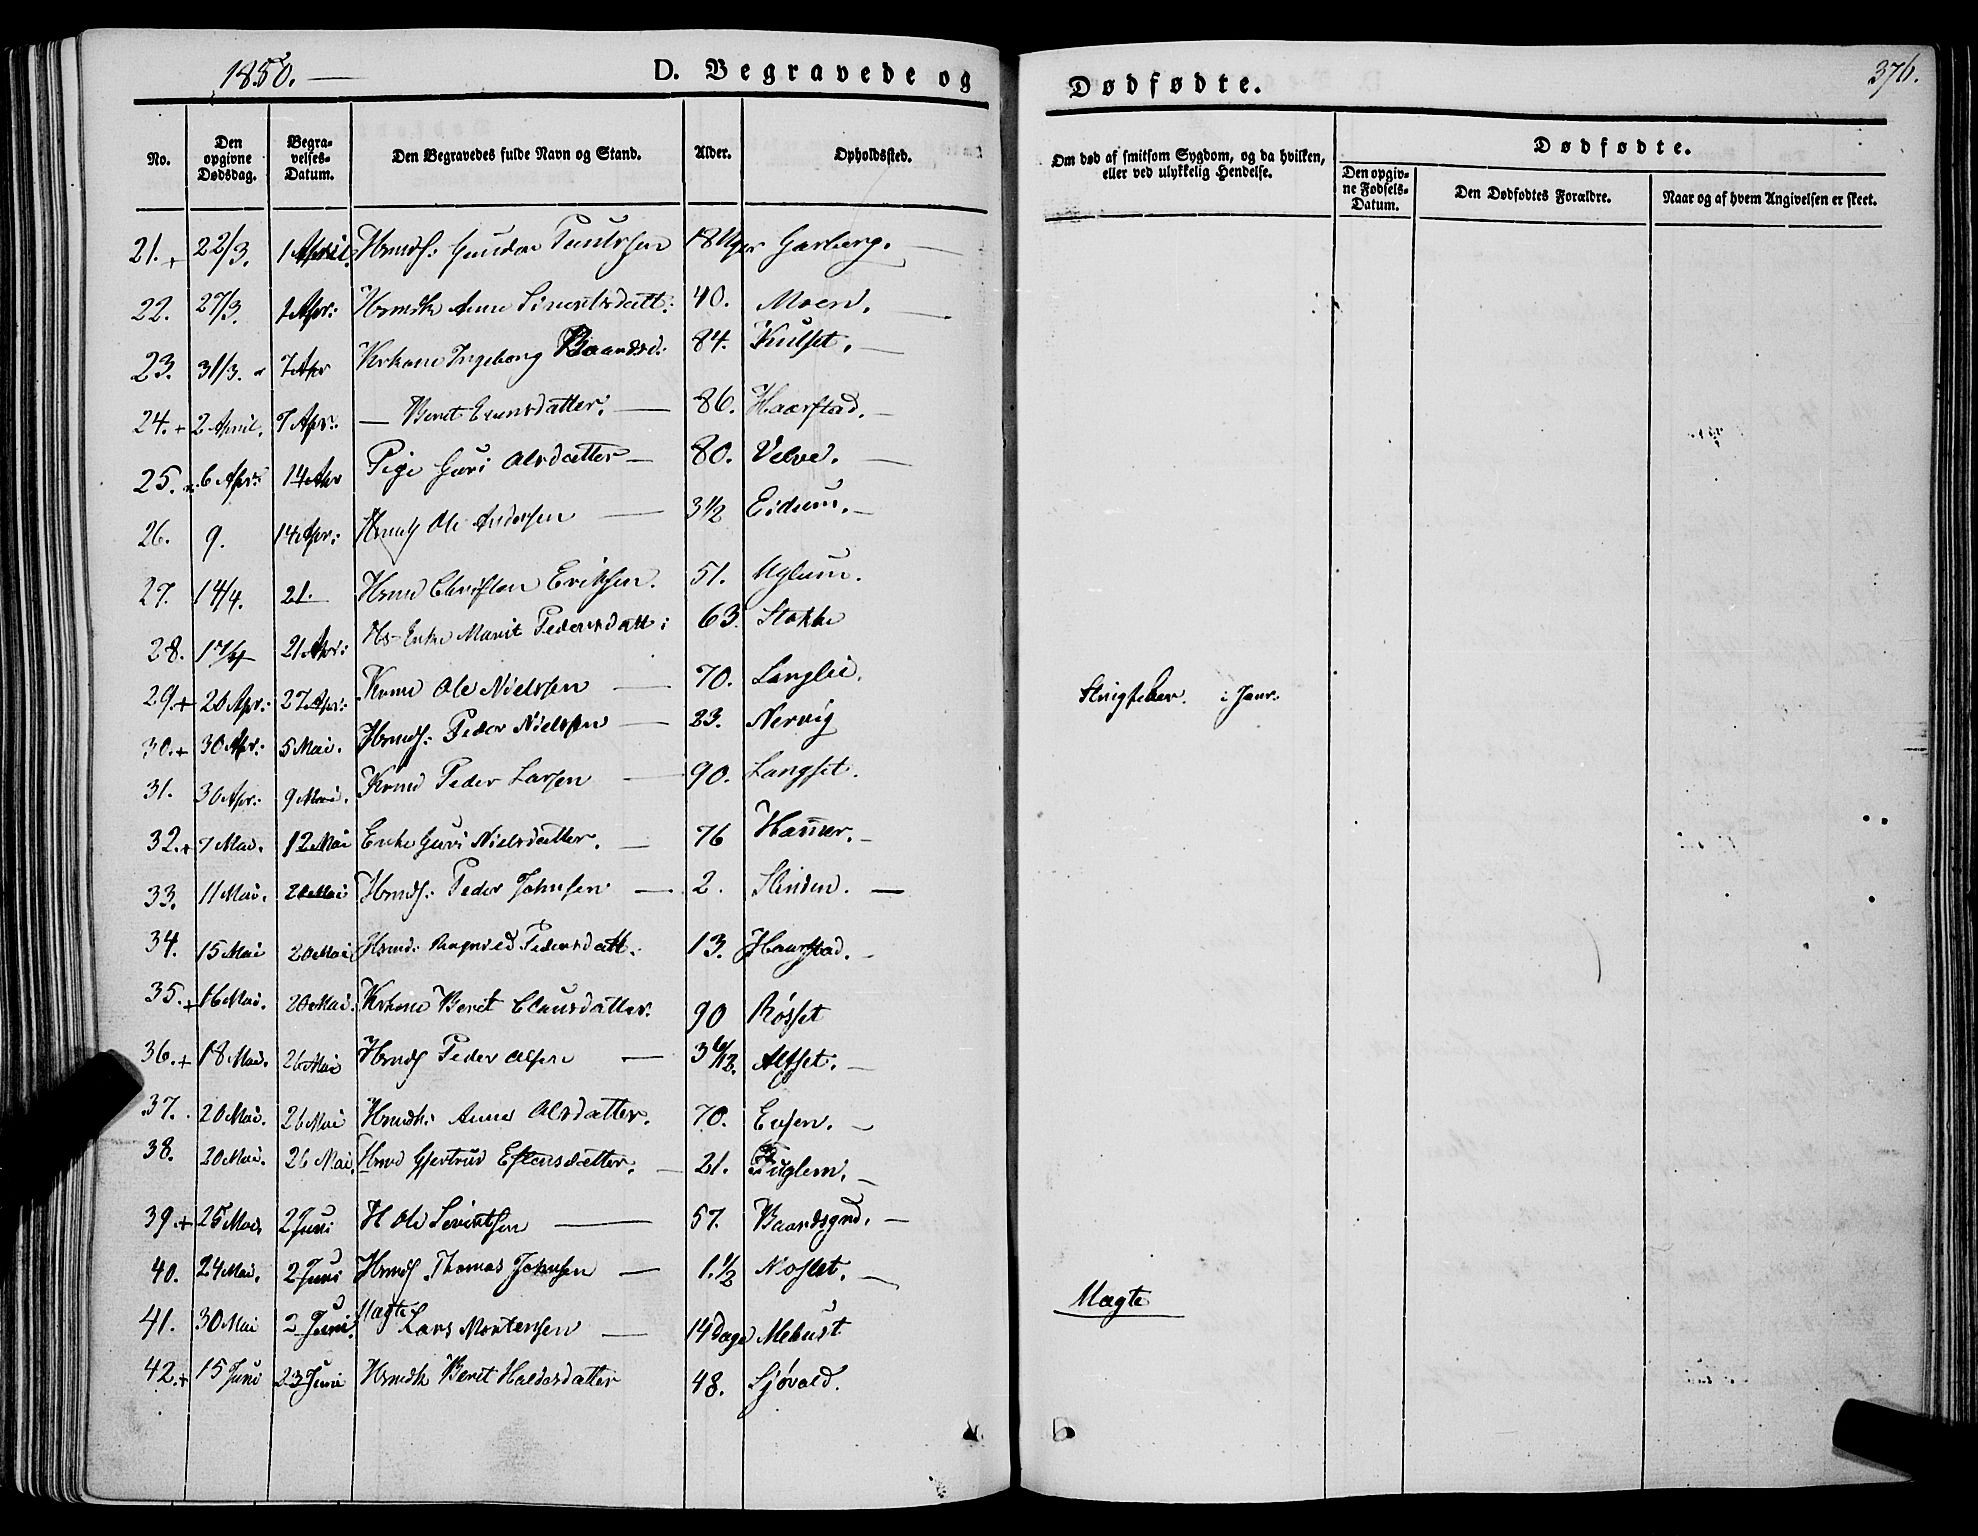 1850. —
D. Begravede og Dødfødte.
376.
No.
Den opgivne Dødsdag.
Begravelses-Datum.
Den Begravedes fulde Navn og Stand.
Alder.
Opholdssted.
Om død af smitsom Sygdom, og da hvilken, eller ved ulykkelig Hendelse.
Dødfødte.
Den opgivne Fødsels-Datum.
Den Dødfødtes Forældre.
Naar og af hvem Angivelsen er skeet.
21. + 22/3. 1 April. Hrmdf: Gunder Paulssen 18 Uger Garberg. —
22. 27/3. 1 Apr: Hrmdk Anne Siverts datt: 40. Moen. —
23. 31/3. 7 Apr Krkone Ingeborg Baardsd: 84. Kulset. —
24. + 2 April. 7 Apr: — Beret Evensdatter. — 86. Haarstad. —
25. 6 Apr: 14 Apr Pige Guri Olsdatter — 80. Velve. —
26. 9. 14 Apr: Hrmdf Ole Andersen — 3 1/2 Eidum. —
27. 14/4. 21. Hrmd Christen Eriksen. 51. Uglum.
28. 17/4 21 Apr: Hs-Enke Marit Pedersdatt: 63. Stokke
29. + 20 Apr: 27 Apr: Krmd Ole Nielssen — 70. Langlie. — 
30. + 30 Apr: 5 Mai. Hrmdf: Peder Nielssen — 23. Nervig
Slingfeber. i Janr:
31. 30 Apr: 9 Mai. Krmd Peder Larsen — 90. Langset.
32. + 7 Mai. 12 Mai Enke Guri Nielsdatter. — 76 Hammer. —
33. 11 Mai. 20 Mai Hrmdf: Peder Johnsen — 2. Slinden. —
34. 15 Mai 20 Mai Hrmd: Ragnild Pedersdatt. 13. Haarstad. —
35. + 16 Mai. 20 Mai. Krkone Beret Clausdatter. 90 Røsset
36. + 18 Mai. 26 Mai Hrmdf Peder Olsen — 3 6/12. Alset. —
37. 20 Mai. 26 Mai Hrmdk: Anne Olsdatter. 70. Evjen. —
38. 20 Mai. 26 Mai. Hrmd Gjertrud Estensdatter. — 21. Fuglem. —
39. + 25 Mai. 2 Juni H Ole Sivertsen — 57. Baardsgrd. —
40. 24 Mai. 2 Juni Hrmdf Thomas Johnsen — 1. 1/2 Moslet. —
41. 30 Mai 2 Juni. Uægte Lars Mortensen — 14 Dage Mebust
Uægte
42. + 15 Juni 23 Juni Hrmdk Beret Haldosdatter 48. Sjøvold.